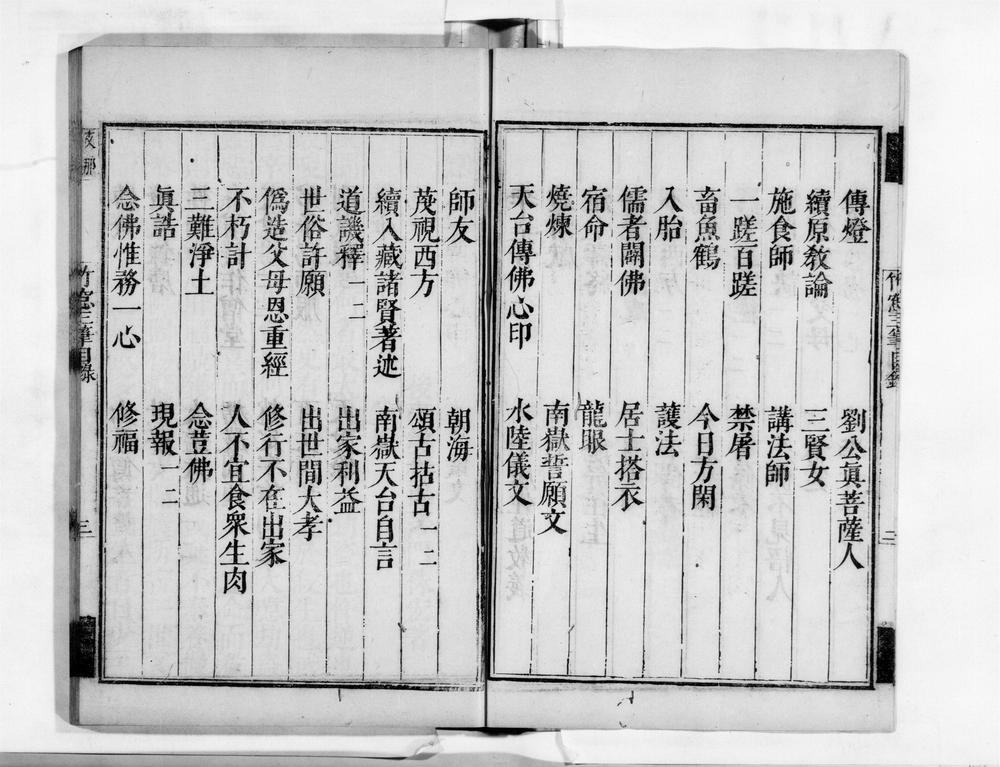 傳燈　劉公眞菩薩人
續原教論　三賢女
施食師　講法師
一蹉百蹉　禁屠
畜魚鶴　今日方閑
入胎　護法
儒者闢佛　居士搭衣
宿命　龍眼
燒煉　南嶽誓願文
天台傳佛心印　水陸儀文
竹窻三筆目錄
師友　朝海
蔑視西方　頌古拈古一二
續入藏諸賢著述　南嶽天台自言
道譏釋一二　出家利益
世俗許願　出世間大孝
僞造父母恩重經　修行不在出家
不朽計　人不宜食衆生肉
三難淨土　念荳佛
眞誥　現報一二
念佛惟務一心　修福
竹窻三筆目錄　三